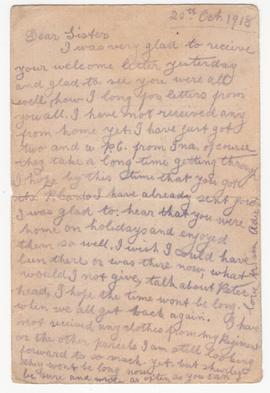 20th Oct. 1918
Dear Sister
I was very glad to receive
your welcome letter yesterday
and glad to see you were all
well, how I long for letters from
you all, I have not received any
from home yet. I have just got
two and a P.C. from Ina, of course
they take a long time getting through
I hope by this time that you got
the P. Cards I have already sent you
I was glad to hear that you were
home on holidays and enjoyed
them so well, I wish I could have
been there or was there now, what
would I not give, talk about
head, I hope the time wont be long
when we all get back again. I have
not received any clothes from my Regiment
or the other parcels I am still looking
forward to so much yet but shurly
they wont be long now,
be sure and write as often as you can